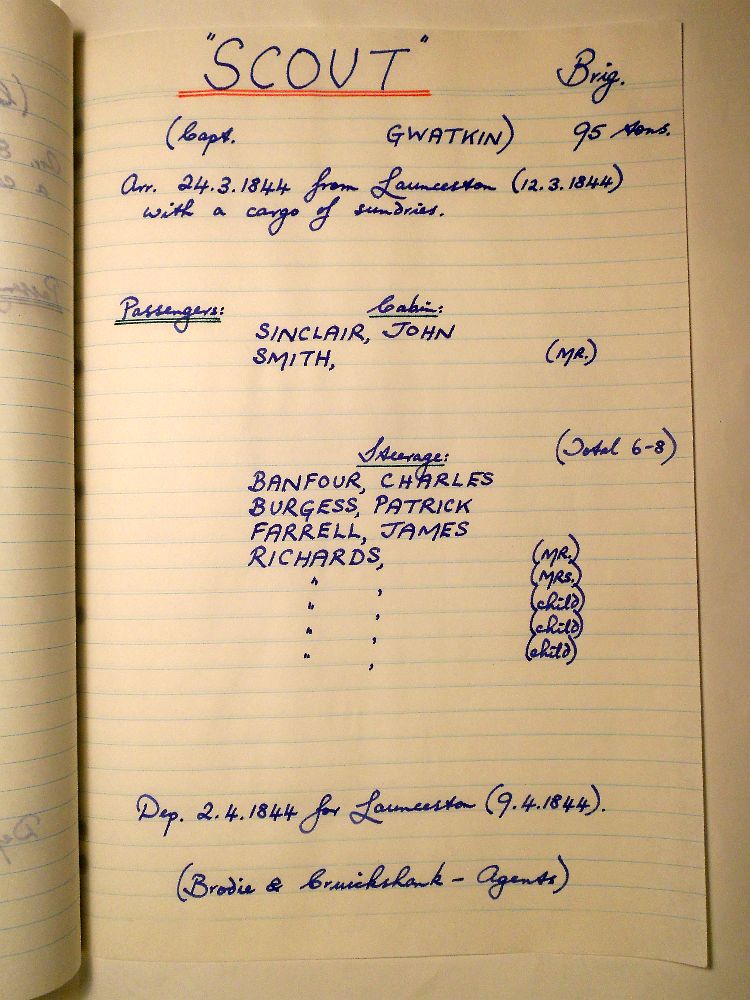 "SCOUT" Brig.
(Capt. GWATKIN) 95 tons.
Arr. 24.3.1844 from Launceston (12.3.1844)
with a cargo of sundries.
Passengers: Cabin:
SINCLAIR, JOHN
SMITH, (MR.)
Steerage: (Total 6-8)
BANFOUR, CHARLES
BURGESS, PATRICK
FARRELL, JAMES
RICHARDS, (MR.)
" , (MRS.)
" , (child)
" , (child)
" , (child)
Dep. 2.4.1844 for Launceston (9.4.1844).
(Brodie & Cruickshank - Agents)